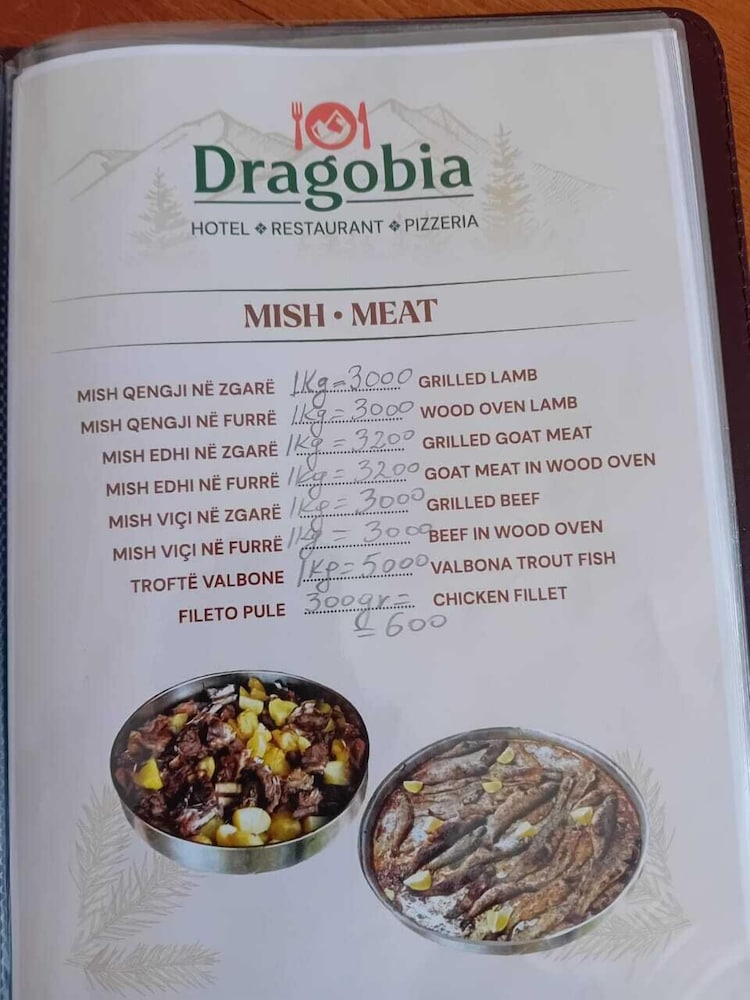 Dragobia
HOTEL ❖ RESTAURANT ❖ PIZZERIA
MISH • MEAT
MISH QENGJI NË ZGARË 1Kg=3000 GRILLED LAMB
MISH QENGJI NË FURRË 1Kg=3000 WOOD OVEN LAMB
MISH EDHI NË ZGARË 1Kg=3200 GRILLED GOAT MEAT
MISH EDHI NË FURRË 1Kg=3200 GOAT MEAT IN WOOD OVEN
MISH VIÇI NË ZGARË 1Kg=3000 GRILLED BEEF
MISH VIÇI NË FURRË 1Kg=3000 BEEF IN WOOD OVEN
TROFTË VALBONE 1Kg=5000 VALBONA TROUT FISH
FILETO PULE 300gr= CHICKEN FILLET
= 600